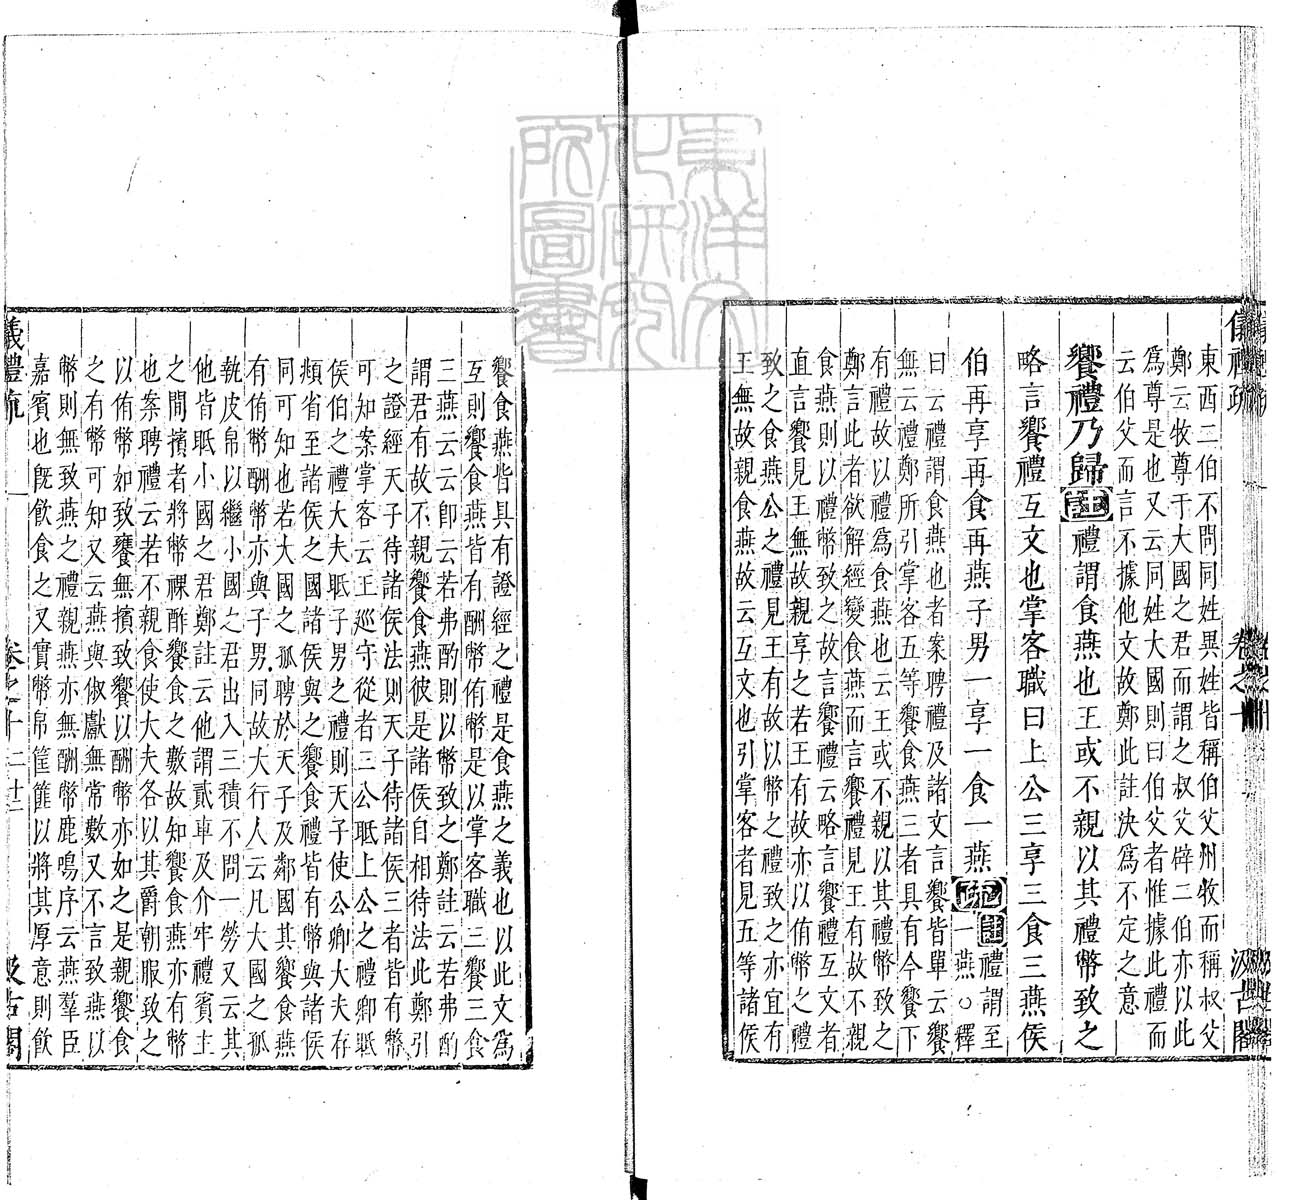 儀禮疏 卷之十 汲古閣
東西二伯不問同姓異姓皆稱伯父州牧而稱叔父
鄭云牧尊于大國之君而謂之叔父辟二伯亦以此
爲尊是也又云同姓大國則曰伯父者惟據此禮而
云伯父而言不據他文故鄭此註決爲不定之意
饗禮乃歸註禮謂食燕也王或不親以其禮幣致之
略言饗禮互文也掌客職曰上公三享三食三燕侯
伯再享再食再燕子男一享一食一燕疏註禮謂至
一燕○釋
曰云禮謂食燕也者案聘禮及諸文言饗皆單云饗
無云禮鄭所引掌客五等饗食燕三者具有今饗下
有禮故以禮爲食燕也云王或不親以其禮幣致之
鄭言此者欲解經變食燕而言饗禮見王有故不親
食燕則以禮幣致之故言饗禮云略言饗禮互文者
直言饗見王無故親享之若王有故亦以侑幣之禮
致之食燕公之禮見王有故以幣之禮致之亦宜有
王無故親食燕故云互文也引掌客者見五等諸侯
饗食燕皆具有證經之禮是食燕之義也以此文爲
互則饗食燕皆有酬幣侑幣是以掌客職三饗三食
三燕云云卽云若弗酌則以幣致之鄭註云若弗酌
謂君有故不親饗食燕彼是諸侯自相待法此鄭引
之證經天子待諸侯法則天子待諸侯三者皆有幣
可知案掌客云王巡守從者三公眡上公之禮卿眡
侯伯之禮大夫眡子男之禮則天子使公卿大夫存
頫省至諸侯之國諸侯與之饗食禮皆有幣與諸侯
同可知也若大國之孤聘於天子及鄰國其饗食燕
有侑幣酬幣亦與子男同故大行人云凡大國之孤
執皮帛以繼小國之君出入三積不問一勞又云其
他皆眡小國之君鄭註云他謂貳車及介牢禮賓主
之間擯者將幣祼酢饗食之數故知饗食燕亦有幣
也案聘禮云若不親食使大夫各以其爵朝服致之
以侑幣如致饔無擯致饗以酬幣亦如之是親饗食
之有幣可知又云燕與俶獻無常數又不言致燕以
幣則無致燕之禮親燕亦無酬幣鹿鳴序云燕羣臣
嘉賓也旣飲食之又實幣帛筐篚以將其厚意則飲
儀禮疏 卷之十 二十二 汲古閣
東洋文化研究所圖書